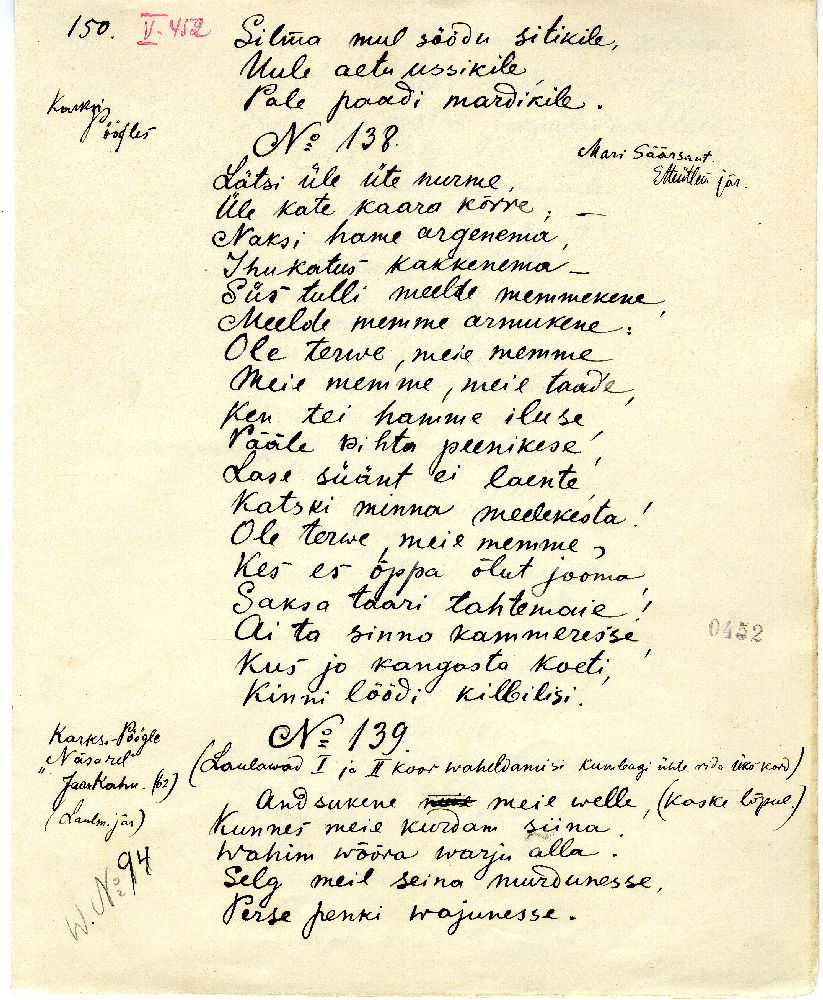 150. V-452
Silma mul söödu sitikile,
Uule aetu ussikile,
Pale paadi mardikile.
Karksi
Pöögles
№ 138.
Mari Säärsaut.
jär.
Lätsi üle üte nurme,
Üle kate kaara kõrre, —
Naksi hame argenema,
Ihukatus kakkenema —
Siis tulli meelde memmekene,
Meelde memme armukene:
Ole terwe, meie memme
Meie memme, meie taade,
Ken tei hamme iluse,
Pääle pihta peenikese,
Lase süänt ei laente,
Katski minna medekesta!
Ole terwe, meie memme,
Kes es õppa õlut jooma,
Saksa taari tahtemaie!
Ai ta sinno kammeresse,
Kus jo kangasta koeti,
Kinni löödi kilbilisi.
0452
№ 139.
Karksi-Pöögle
"Näsarel"
Jaas Kahu. (62)
(Laulm. jär)
(Laulawad I ja II koor waheldamisi kumbagi ühte rida üks kord)
Andsukene meie welle, (Kaske lõpul.)
Kunnes meie kurdam siina.
Wahim wõõra warju alla.
Selg meil seina murdunesse,
Perse penki wajunesse.
W. № 94